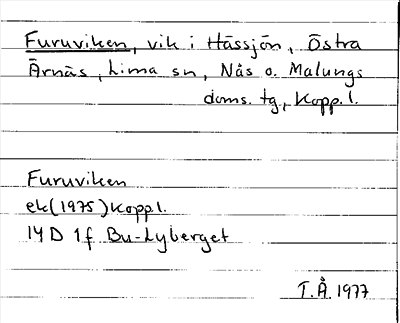 Furuviken, vik i Hässjön, Östra
Ärnäs, Lima sn, Nås o. Malungs
doms. tg, Kopp. l.
Furuviken
ek (1975) Kopp l.
14 D 1f Bu-Lyberget
T.Å. 1977